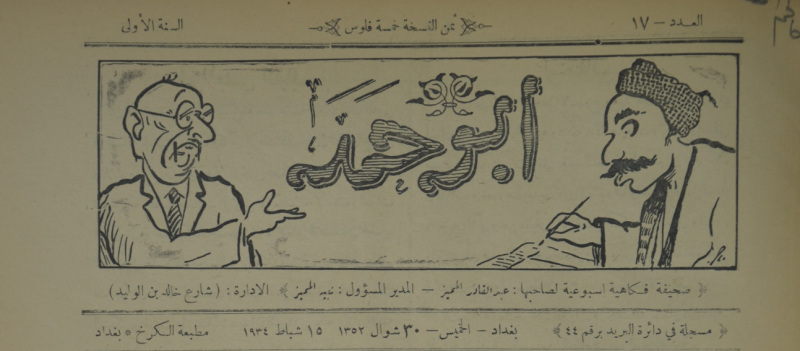 العدد — ١٧ ﴿ ثمن النسخة خمسة فلوس ﴾ السنة الأولى
ابو حمد
﴿ صحيفة فكاهية اسبوعية لصاحبها : عبدالقادر المميز — المدير المسؤول : نبيه المميز ﴾ الادارة : ( شارع خالد بن الوليد )
﴿ مسجلة في دائرة البريد برقم ٤٤ ﴾ بغداد — الخميس — ٣٠ شوال ١٣٥٢ ١٥ شباط ١٩٣٤ مطبعة الكرخ ٥ بغداد